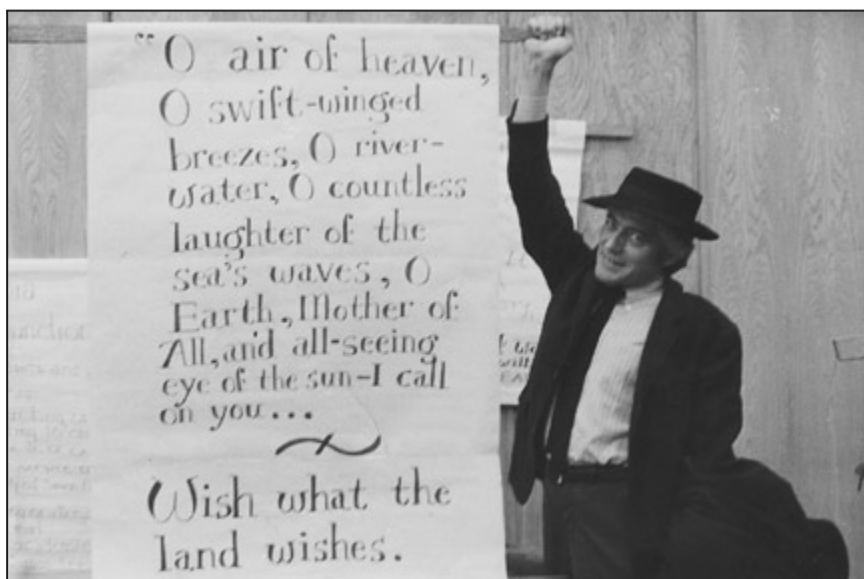 “O air of heaven,
O swift-winged
breezes, O river-
water, O countless
laughter of the
sea's waves, O
Earth, Mother of
All, and all-seeing
eye of the sun–I call
on you...
Wish what the
land wishes.